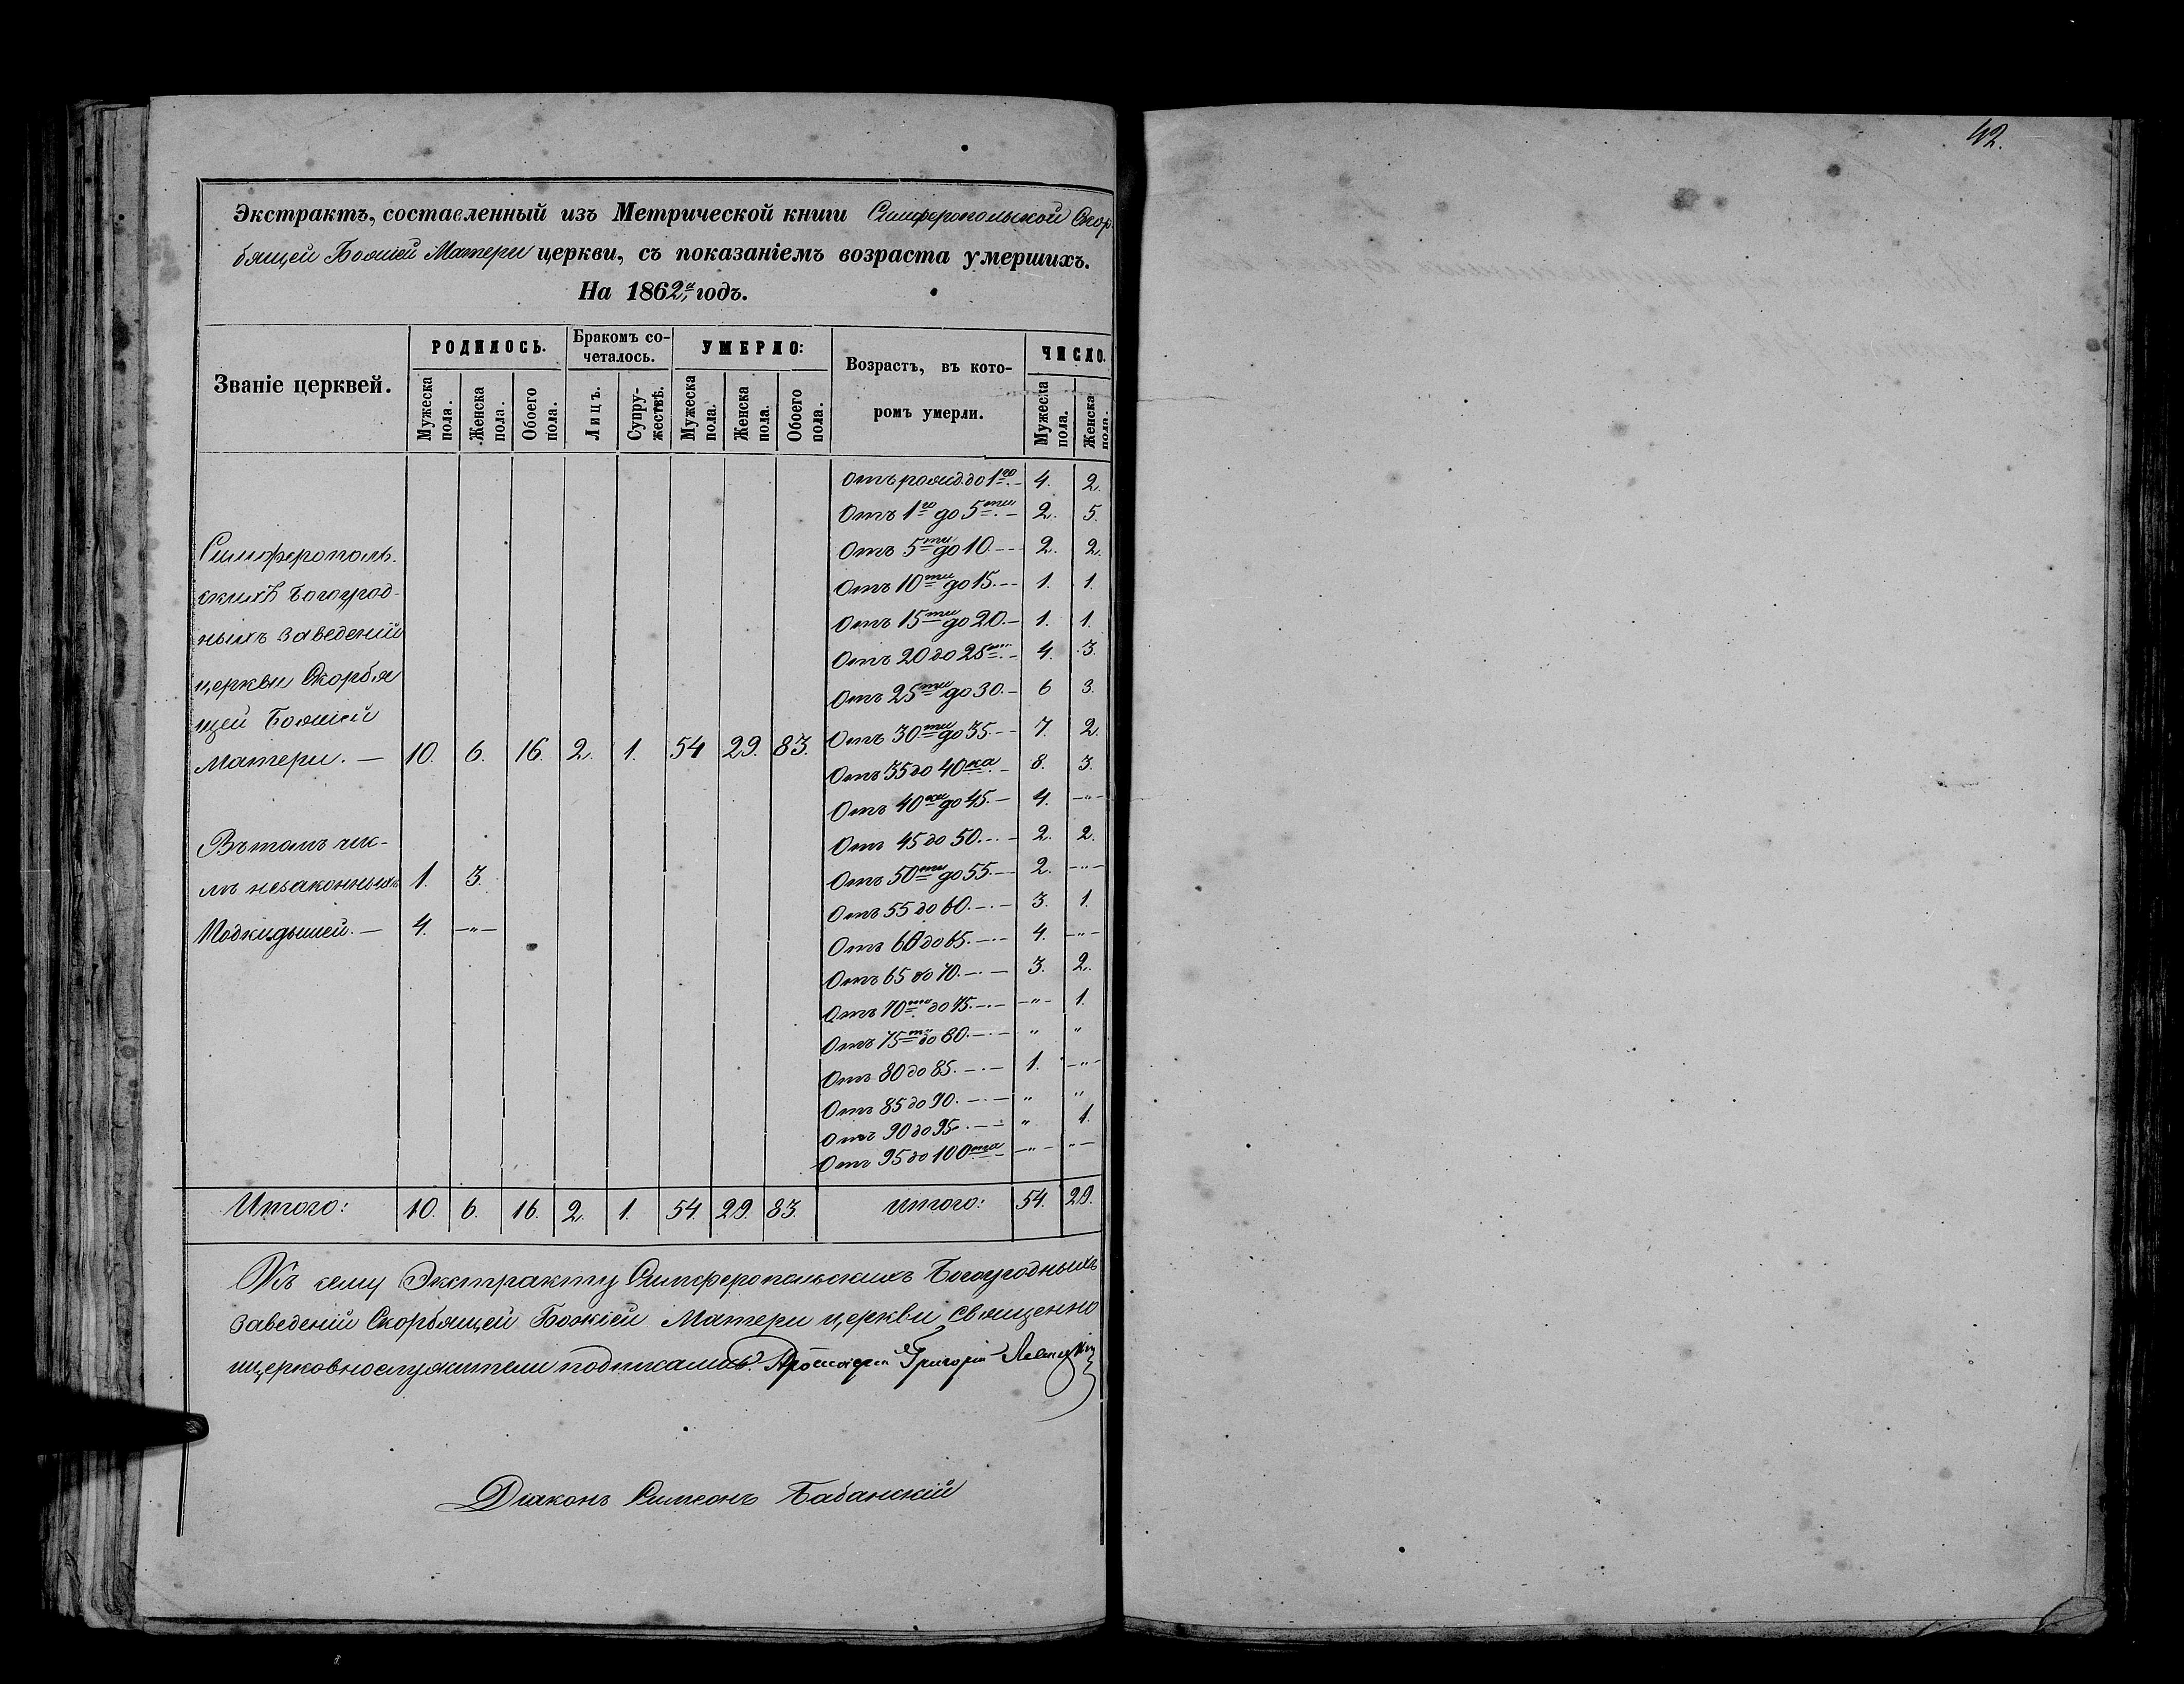 42.
Экстрактъ, составленный изъ Метрической книги Симферопольской Скор-
бящей Божіей Матери церкви, съ показаніемъ возраста умершихъ.
На 1862й годъ.
Званіе церквей. РОДИЛОСЬ. Бракомъ со-четалось. УМЕРЛО: Возрастъ, въ кото-ромъ умерли. ЧИСЛО.
Мужеска пола. Женска пола. Обоего пола. Лицъ. Супру-жествъ. Мужеска пола. Женска пола. Обоего пола. Мужеска пола. Женска пола.
Отъ рожд. до 1го. 4. 2.
Отъ 1го до 5ти. 2. 5.
Симферополь-
Отъ 5ти до 10. 2. 2.
скихъ Богоугод-
Отъ 10ти до 15. 1. 1.
ныхъ заведеній
Отъ 15ти до 20. 1. 1.
Отъ 20 до 25ти. 4. 3.
церкви Скорбя
Отъ 25ти до 30. 6 3.
щей Божіей
Отъ 30ти до 35. 7. 2.
Матери. — 10. 6. 16. 2. 1. 54 29. 83.
Отъ 35 до 40ка. 8. 3.
Отъ 40ка до 45. 4. -"-
Въ томъ чис-
Отъ 45 до 50. 2. 2.
лѣ незаконныхъ 1. 3.
Отъ 50ти до 55. 2. -"-
Отъ 55 до 60. 3. 1.
Подкидышей. — 4. -"-
Отъ 60 до 65. 4. -"-
Отъ 65 до 70. 3. 2.
Отъ 70ти до 75. -"- 1.
Отъ 75ти до 80. " "
Отъ 80 до 85. 1. -"-
Отъ 85 до 90. " "
Отъ 90 до 95. " 1.
Отъ 95 до 100та -"- "-
Итого: 10. 6. 16. 2. 1. 54. 29. 83. Итого: 54. 29.
Къ сему Экстракту Симферопольскихъ Богоугодныхъ
заведеній Скорбящей Божіей Матери церкви священно
ицерковнослужители подписались: Протоіерей Григорій
Діаконъ Симеонъ Бабанскій